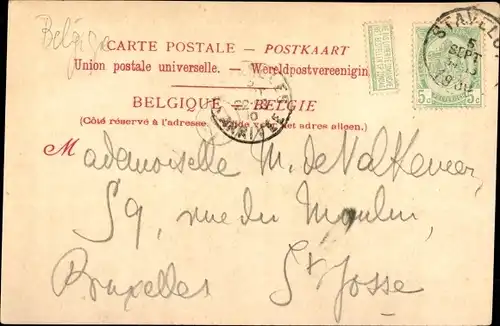 Belgique
CARTE POSTALE – POSTKAART
Union postale universelle. – Wereldpostvereeniging
BELGIQUE – BELGIE
(Côté réservé à l'adresse. Zijde adres alleen.)
STAVELOT
5
SEPT
5c 5c
ARRIVÉE
Mademoiselle M. de Valkeneer,
59, rue du Moulin,
Bruxelles St Josse